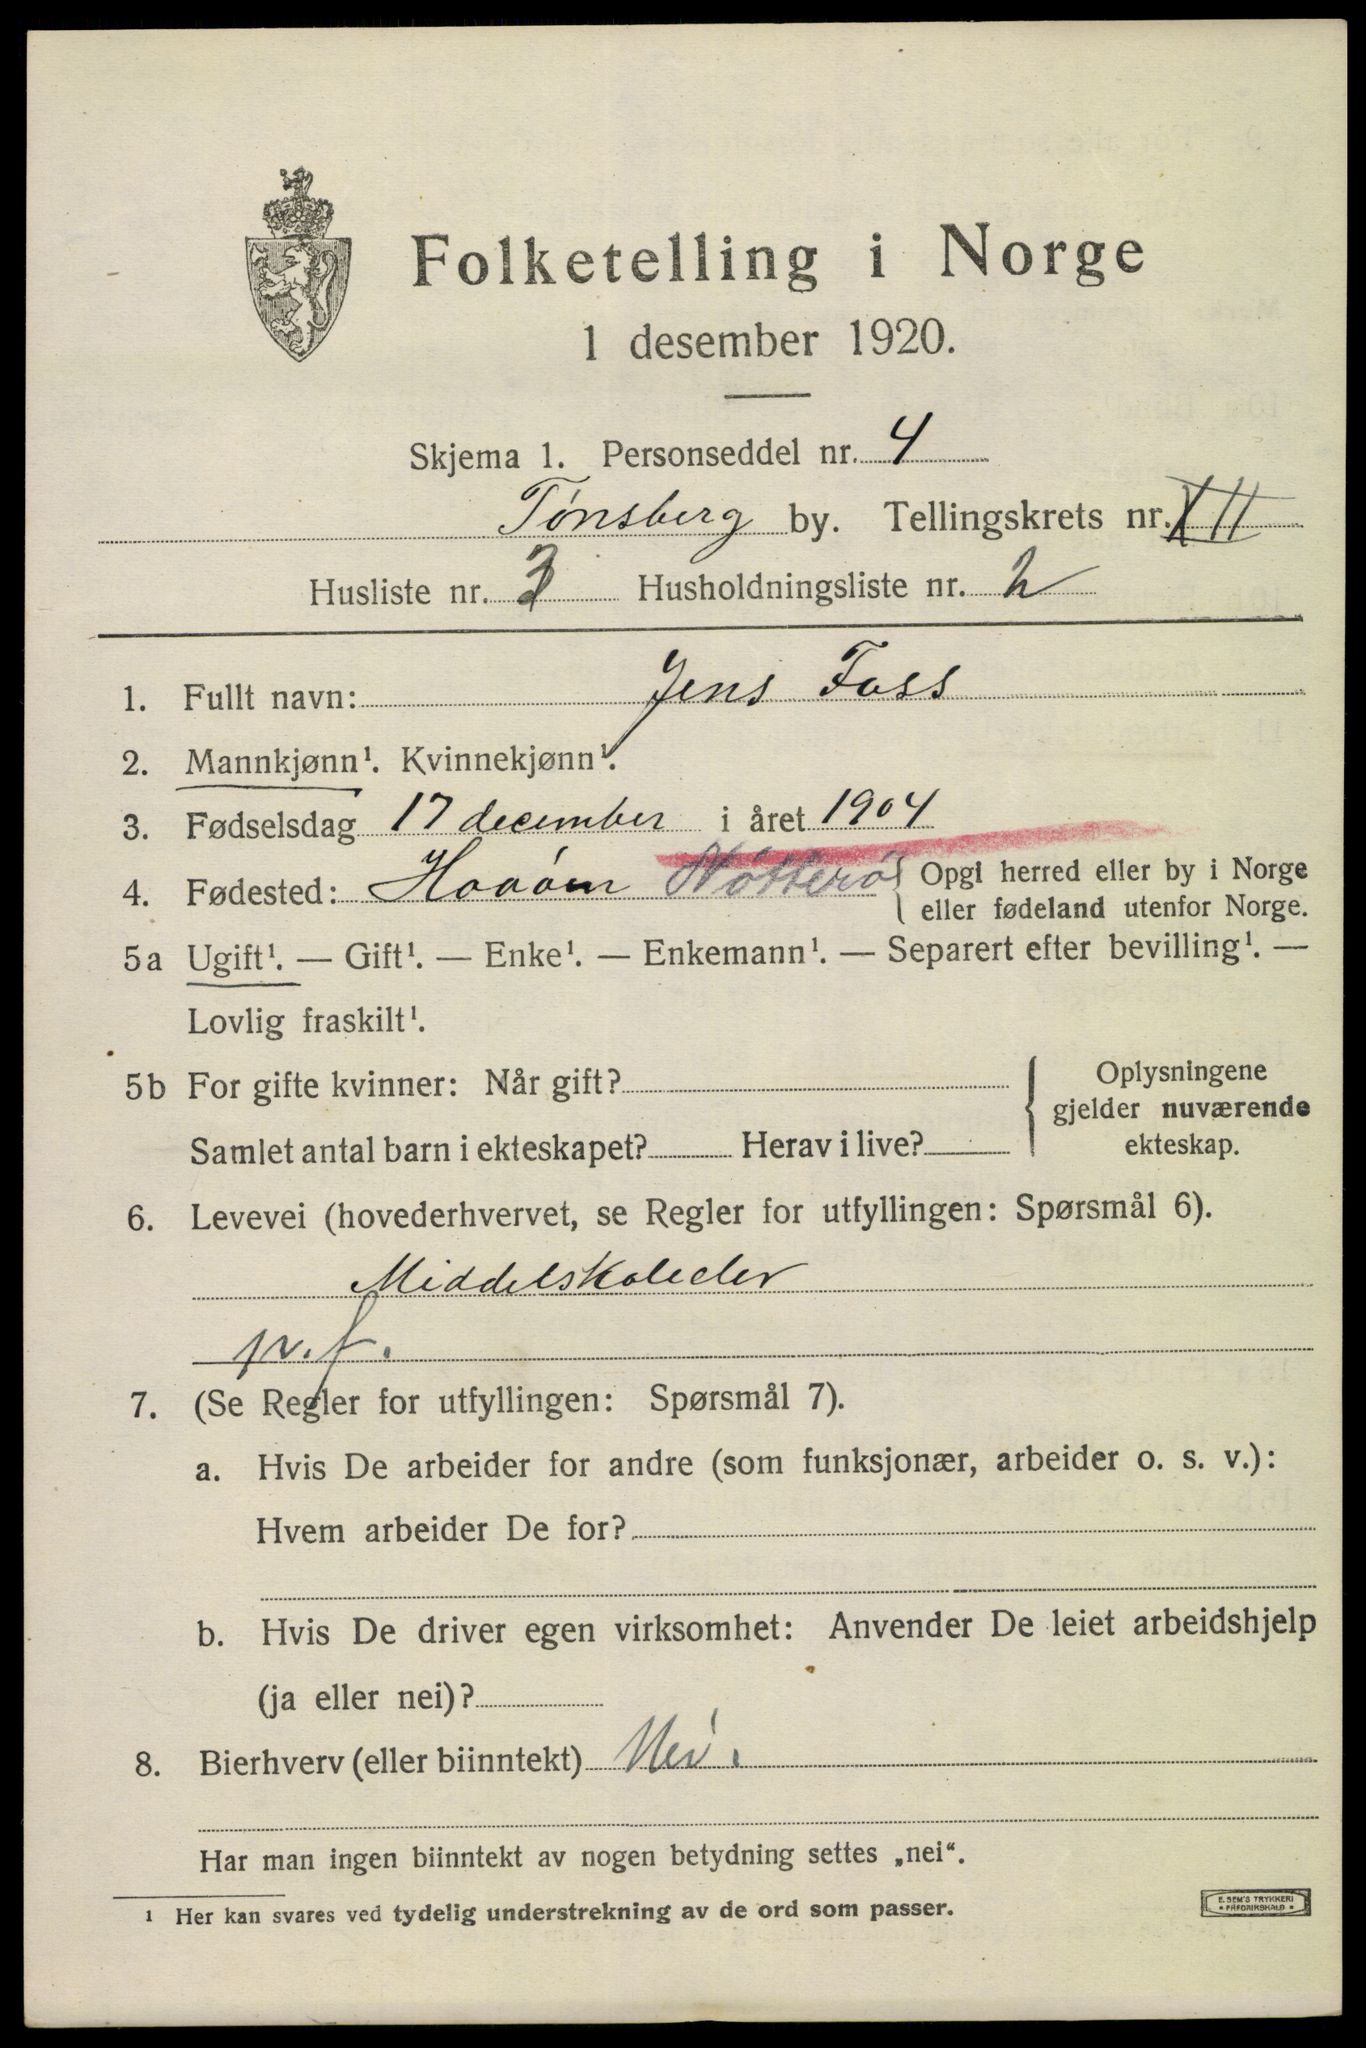 Folketelling i Norge
1 desember 1920.
Skjema 1. Personseddel nr. 4
Tønsberg by. Tellingskrets nr. XII
Husliste nr. 3 Husholdningsliste nr. 2
1. Fullt navn: Jens Foss
2. Mannkjønn¹. Kvinnekjønn¹.
3. Fødselsdag 17 december i året 1904
4. Fødested: Nøtterø { Opgi herred eller by i Norge
eller fødeland utenfor Norge.
5a Ugift¹. — Gift¹. — Enke¹. — Enkemann¹. — Separert efter bevilling¹. —
Lovlig fraskilt¹.
5b For gifte kvinner: Når gift?
Samlet antal barn i ekteskapet? Herav i live?
{ Oplysningene
gjelder nuværende
ekteskap.
6. Levevei (hovederhvervet, se Regler for utfyllingen: Spørsmål 6).
Middelskoleelev
p. f.
7. (Se Regler for utfyllingen: Spørsmål 7).
a. Hvis De arbeider for andre (som funksjonær, arbeider o. s. v.):
Hvem arbeider De for?
b. Hvis De driver egen virksomhet: Anvender De leiet arbeidshjelp
(ja eller nei)?
8. Bierhverv (eller biinntekt) Nei.
Har man ingen biinntekt av nogen betydning settes „nei“.
¹ Her kan svares ved tydelig understrekning av de ord som passer.
E. SEM'S TRYKKERI
* FREDRIKSHALD *